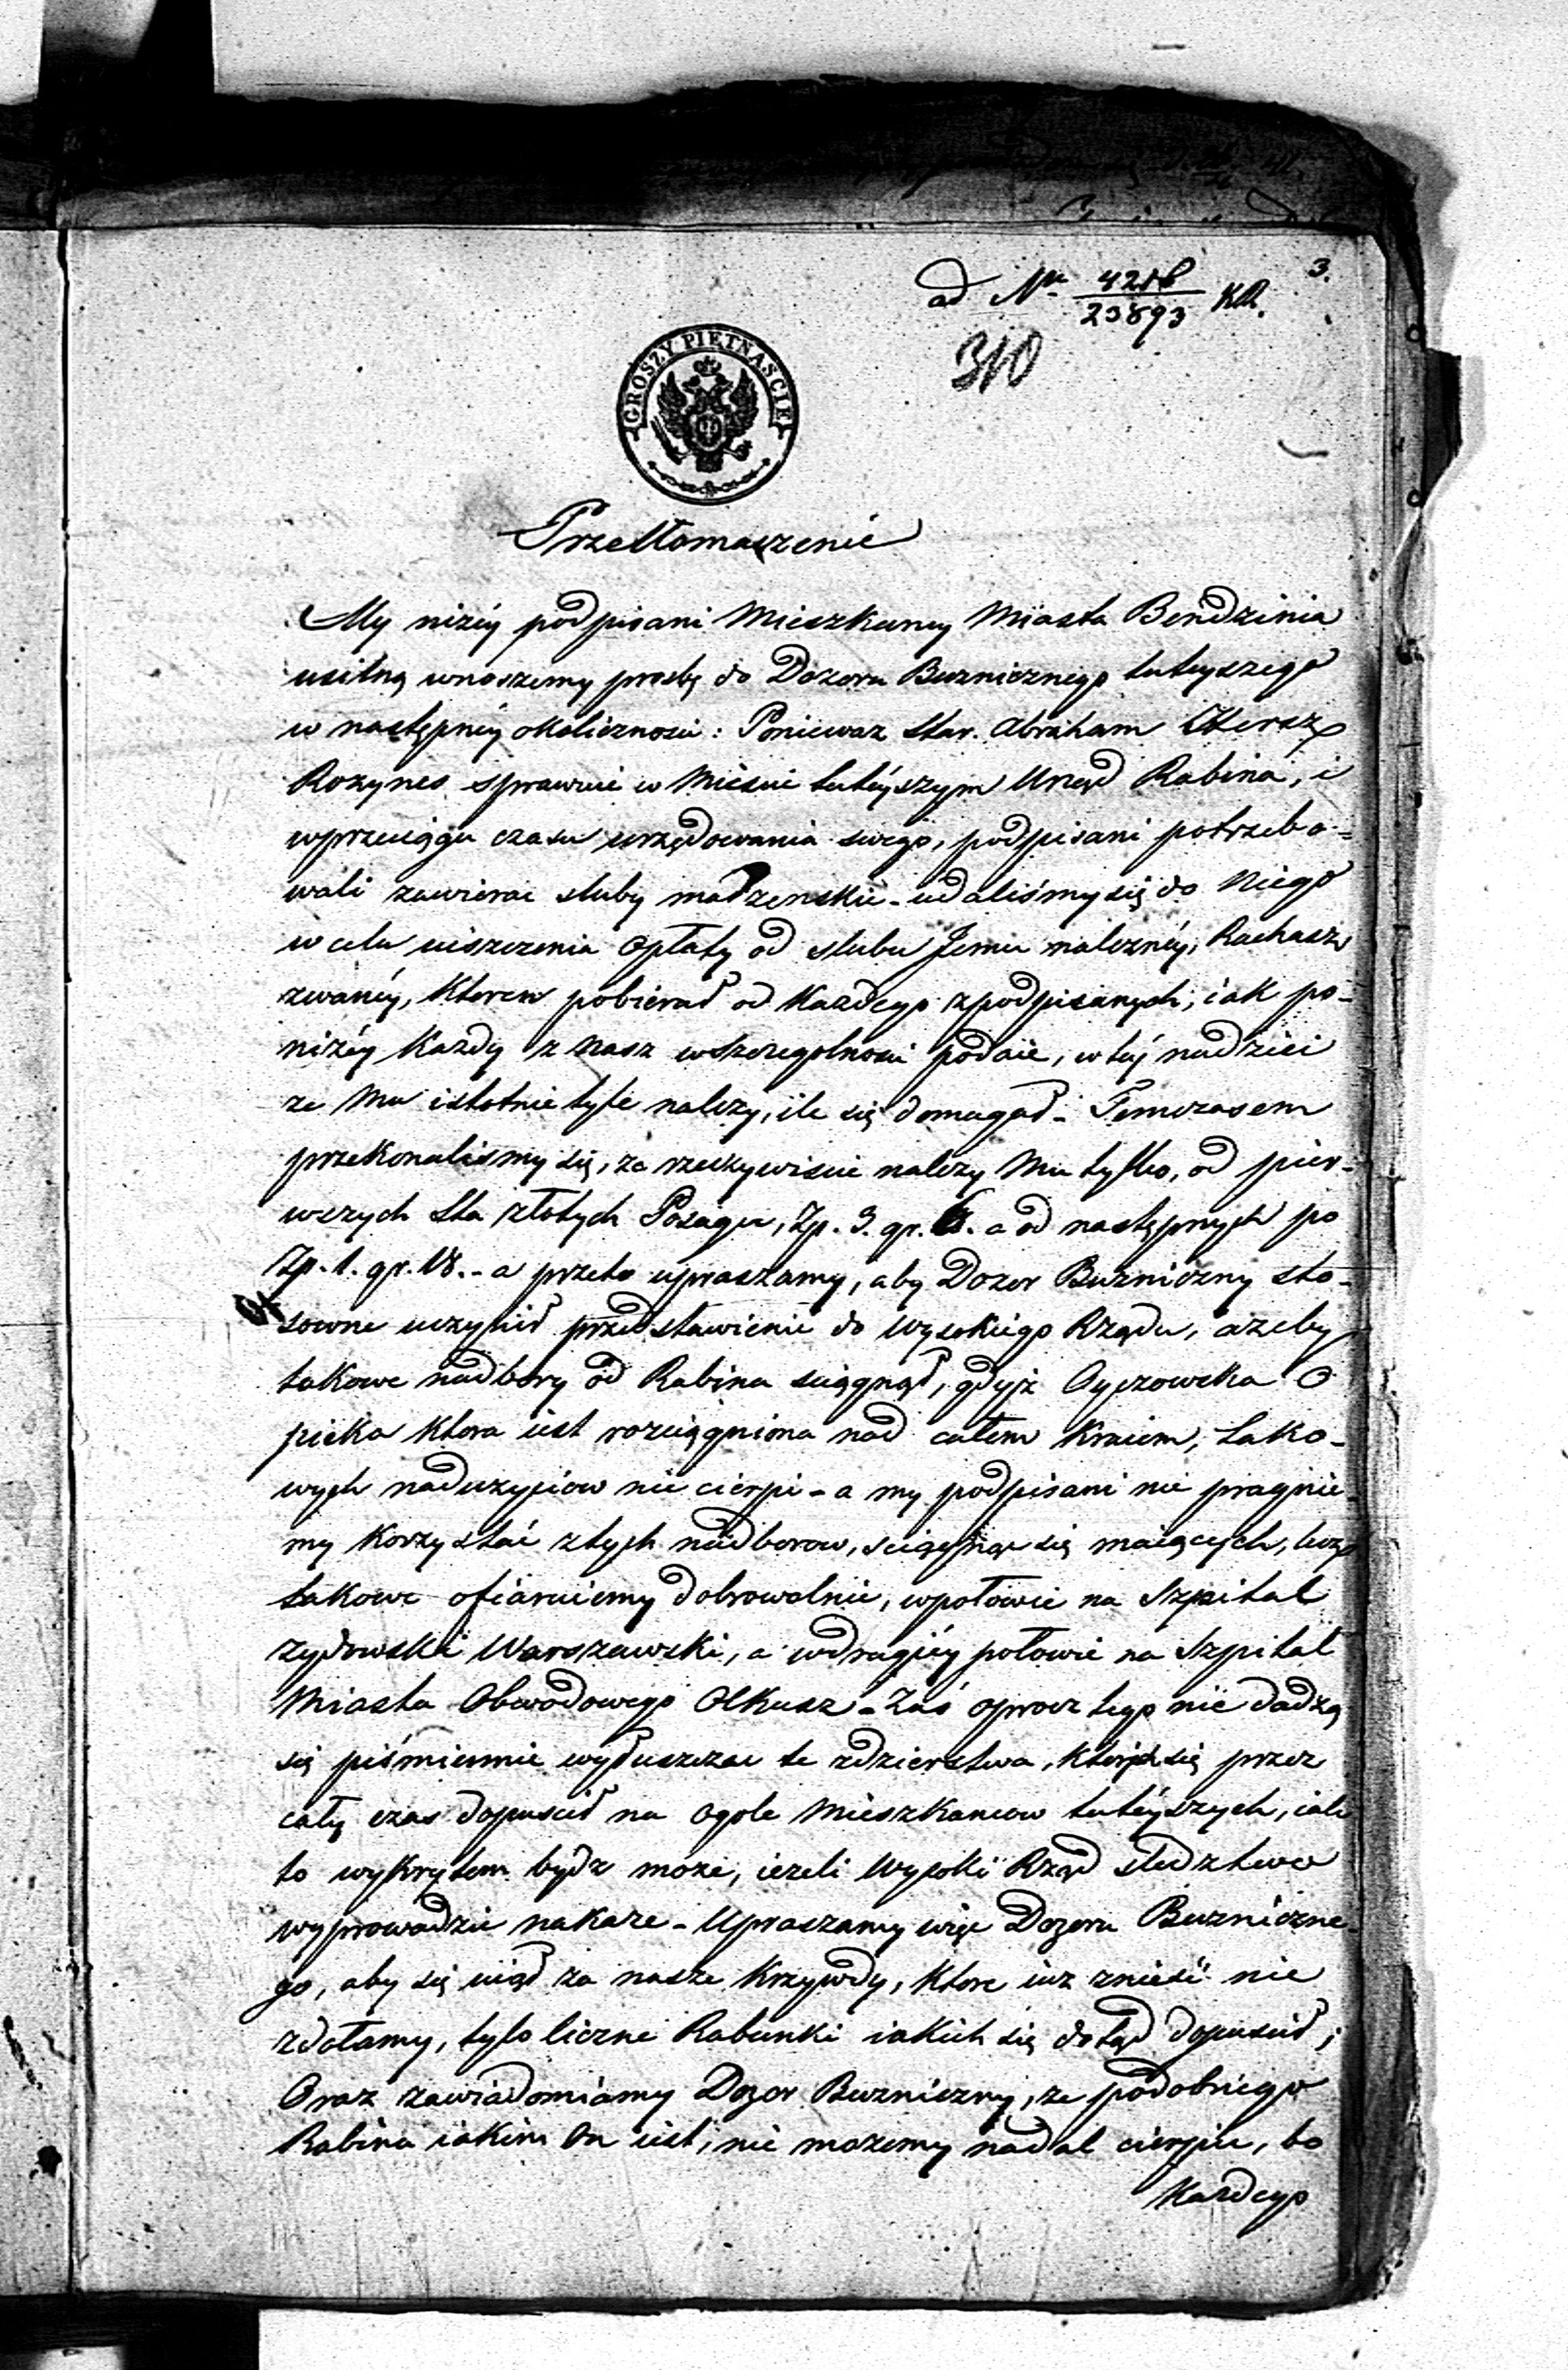 3.
ad Nr 4218/23893 KR.
310
GROSZY PIĘTNAŚCIE
Przetłomaczenie
My niżéy podpisani Mieszkancy Miasta Bendzinia
usilną wnoszemy prosbę do Dozoru Buznicznego tuteyszego
w następnéy okolicznosci: Poniewaz Star. Abraham Hersz
Rozynes sprawuie w Miescie tutéyszym Urząd Rabina, i
wprzeciągu czasu urzędowania swego, podpisani potrzebo-
wali zawierac sluby małzenskie - udaliśmy się do Niego
w celu uiszczenia opłaty od slubu Jemu nalezney, Rachasz
zwanéy, Kteren pobierał od Kazdego zpodpisanych, iak po-
nizéy Kazdy z nasz wszczegolnosci podaie, w téy nadziei
ze Mu istotnie tyle nalezy, ile się domagał - Temczasem
przekonalismy się, ze rzeczywiscie nalezy Mu tylko, od pier-
wszych Sta złotych Posagu, Zp. 3. gr. 6. a od następnych po
Zp. 1. gr. 18. - a przeto upraszamy, aby Dozor Buzniczny sto-
sowne uczynił przedstawienie do Wysokiego Rządu, azeby
takowe nadbory od Rabina sciągnął, gdyż Oyczowska O
pieka Ktora iest rozciągniona nad całem Kraiem, tako-
wych naduzyciow nie cierpi - a my podpisani nie pragnie-
my Korzystać ztych nadborow, sciągnąc się maiących, lecz
takowe ofiaruiemy dobrowolnie, wpołowie na Szpital
zydowski Warszawski, a wdrugiéy połowie na Szpital
Miasta Obwodowego Olkusz - Zaś oprocz tego nie dadzą
się piśmiennie wyłuszczac te zdzierstwa, Których się przez
cały czas dopuscił na ogole Mieszkancow tutéyszych, iak
to wykrytem bydz moze, iezeli Wysoki Rząd sledztwo
wyprowadzic nakaze - Upraszamy więc Dozoru Buznicze-
go, aby się uiął za nasze Krzywdy, Ktore iuz znieść nie
zdołamy, tylo liczne Rabunki iakich się dotąd dopuscił;
Oraz zawiadomiamy Dozor Buzniczny, ze podobnego
Rabina iakim On iest, nie mozemy nadal cierpiec, bo
Kazdego